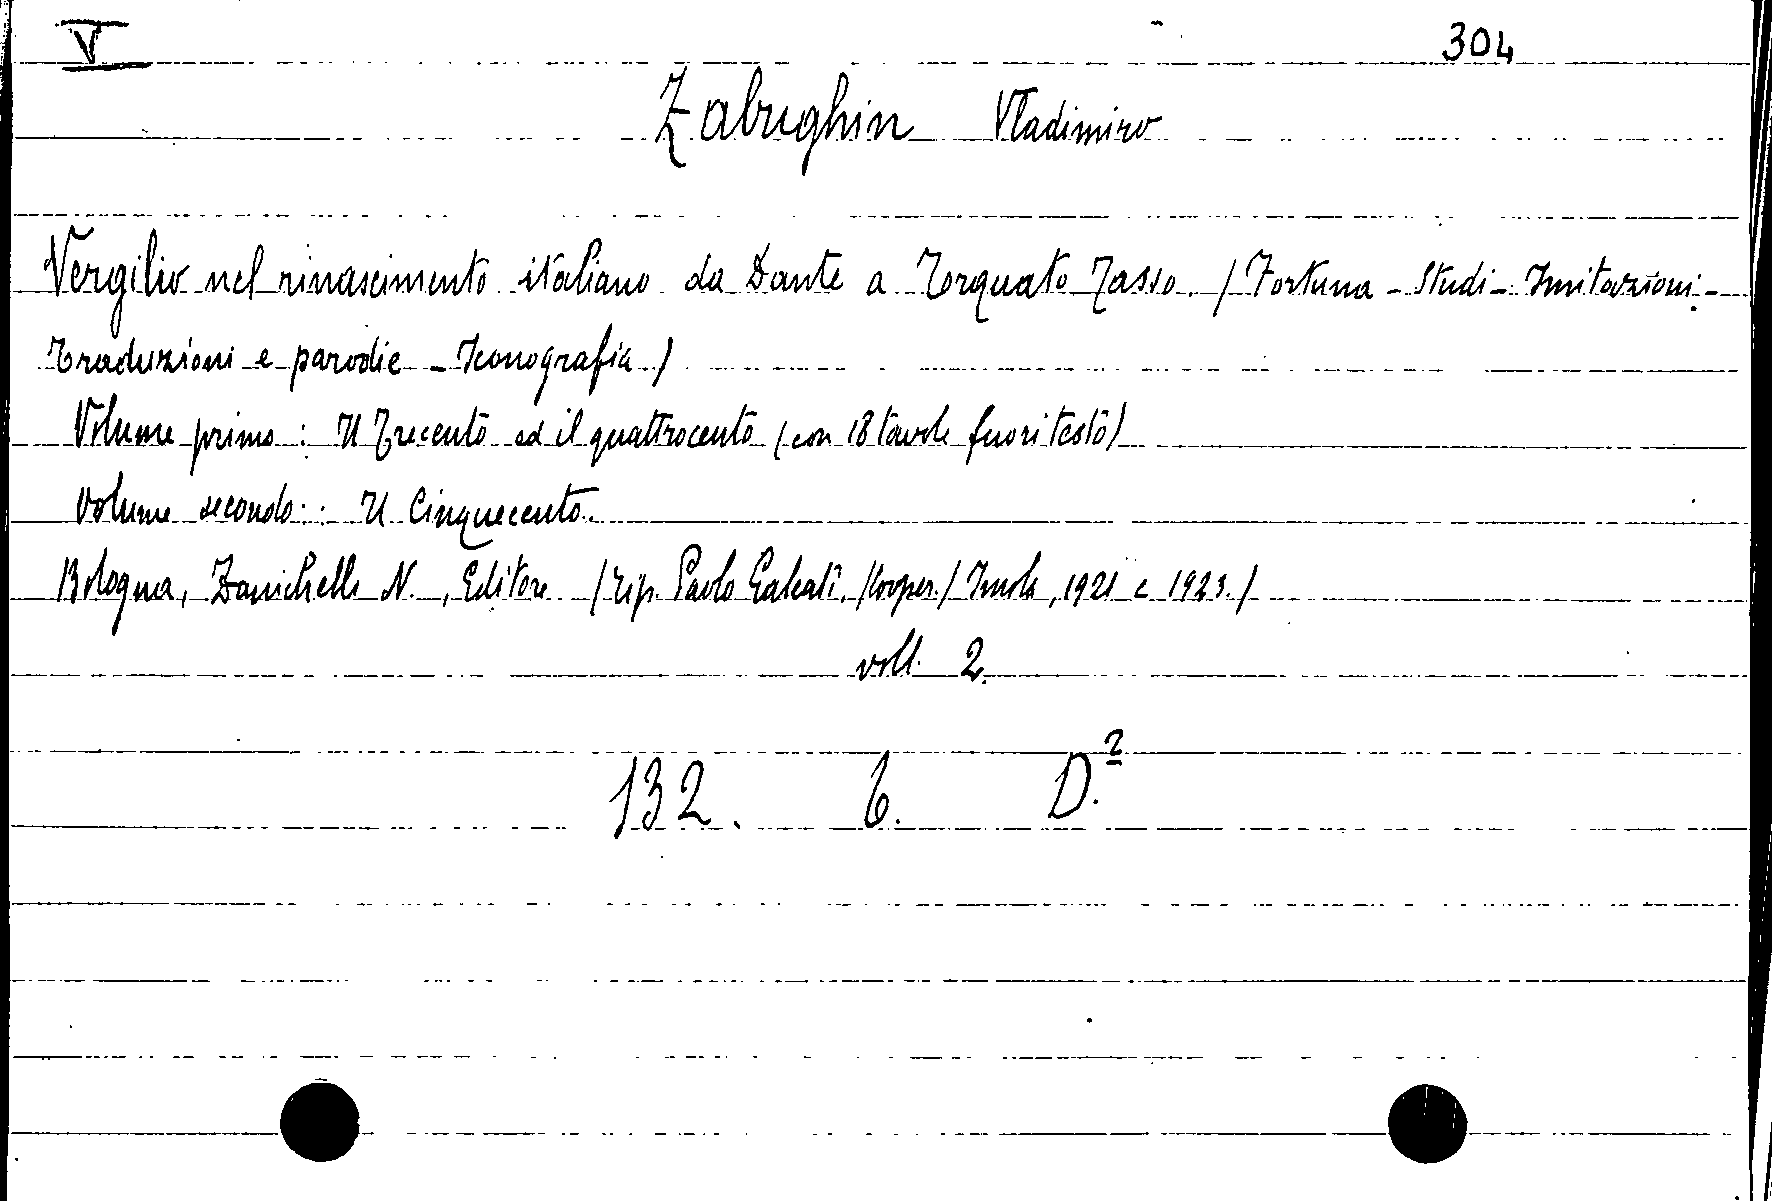 V 304
Zabughin Vladimiro
Vergilio nel rinascimento italiano da Dante a Torquato Tasso. (Fortuna - Studi - Imitazioni -
Traduzioni e parodie - Iconografia)
Volume primo: Il Trecento ed il quattrocento (con 18 tavole fuori testo)
Volume secondo: Il Cinquecento.
Bologna, Zanichelli N., Editore (Tip. Paolo Galeati, (Cooper.) Imola, 1921 e 1923.)
voll. 2.
132. 6. D.2